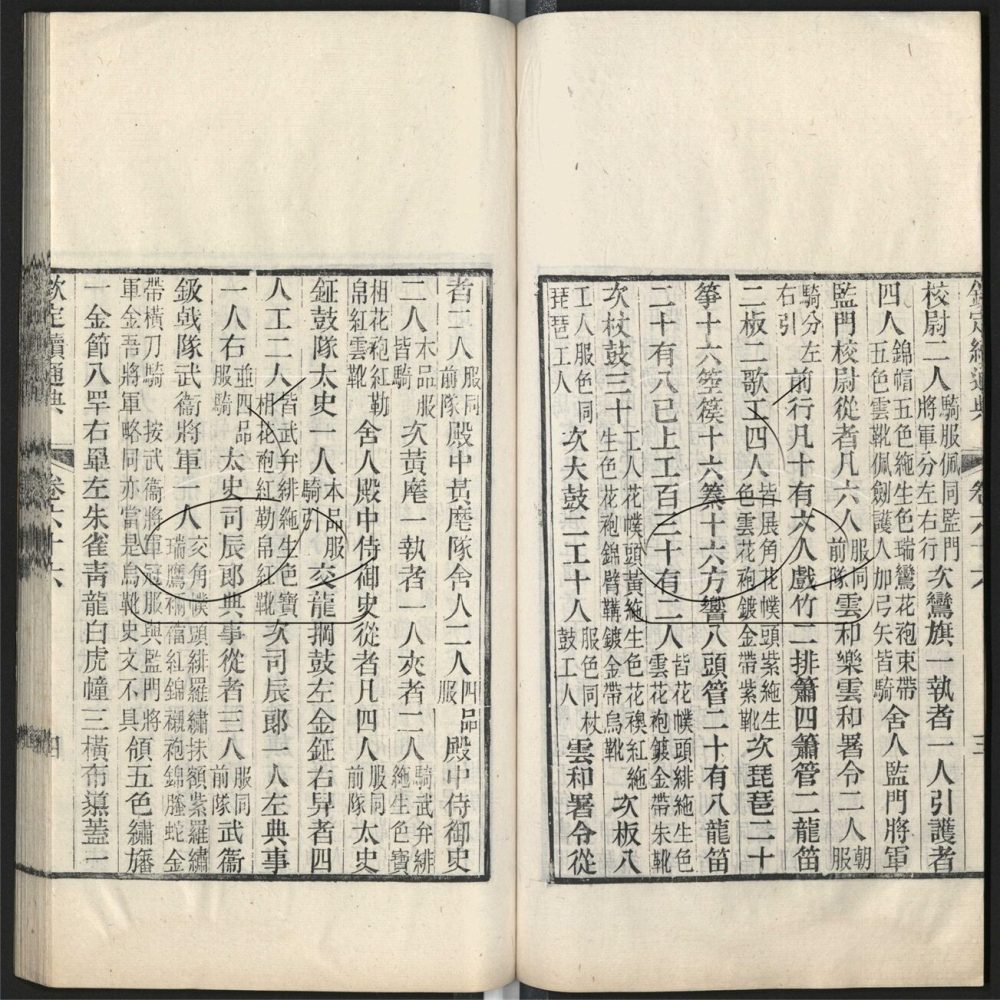 欽定續通典 卷六十六 三
校尉二人騎服佩同監門將軍分左右行次鸞旗一執者一人引護者
四人錦帽五色絁生色瑞鸞花袍束帶五色雲靴佩劍護人加弓矢皆騎舍人監門將軍
監門校尉從者凡六人服同前隊雲和樂雲和署令二人朝服
騎分左右引前行凡十有六人戲竹二排簫四簫管二龍笛
二板二歌工四人皆展角花幞頭紫絁生色雲花袍鍍金帶紫靴次琵琶二十
箏十六箜篌十六𥱧十六方響八頭管二十有八龍笛
二十有八已上工百三十有二人皆花幞頭緋絁生色雲花袍鍍金帶朱靴
次杖鼓三十工人花幞頭黃絁生色花襖紅絁生色花袍錦臂鞲鍍金帶烏靴次板八
工人服色同琵琶工人次大鼓二工十人服色同杖鼓工人雲和署令從
者二人服同前隊殿中黃麾隊舍人二人四品服殿中侍御史
二人本品服皆騎次黃麾一執者一人夾者二人騎武弁緋絁生色寶
相花袍紅勒帛紅雲靴舍人殿中侍御史從者凡四人服同前隊太史
鉦鼓隊太史一人本品服騎引交龍㧏鼓左金鉦右舁者四
人工二人皆武弁緋絁生色寶相花袍紅勒帛紅靴次司辰郎一人左典事
一人右並四品服騎太史司辰郎典事從者三人服同前隊武衞
鈒戟隊武衞將軍一人交角幞頭緋羅繡抹額紫羅繡瑞鷹裲襠紅錦襯袍錦螣蛇金
帶橫刀騎 按武衞將軍冠服與監門將軍金吾將軍略同亦當是烏靴史文不具領五色繡旛
一金節八罕右畢左朱雀青龍白虎幢三橫布導蓋一
欽定續通典 卷六十六 四